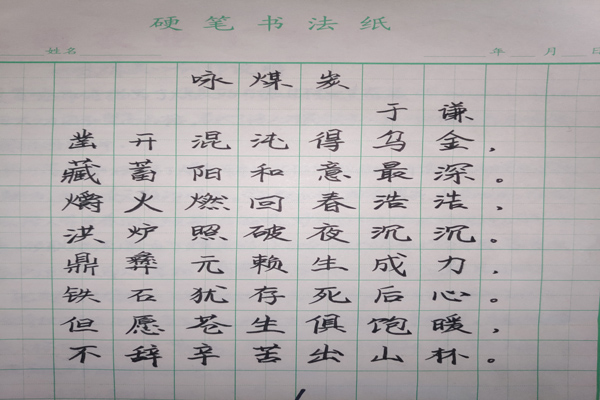 硬笔书法纸
姓名 年 月 日
咏煤炭
于谦
凿开混沌得乌金，
藏蓄阳和意最深。
爝火燃回春浩浩，
洪炉照破夜沉沉。
鼎彝元赖生成力，
铁石犹存死后心。
但愿苍生俱饱暖，
不辞辛苦出山林。